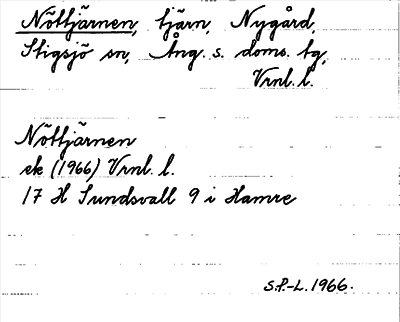 Nöttjärnen, tjärn, Nygård,
Stigsjö sn, Ång. s. doms. tg,
Vrnl. l.
Nöttjärnen
ek (1966) Vrnl. l.
17 H Sundsvall 9 i Hamre
S.P.-L. 1966.